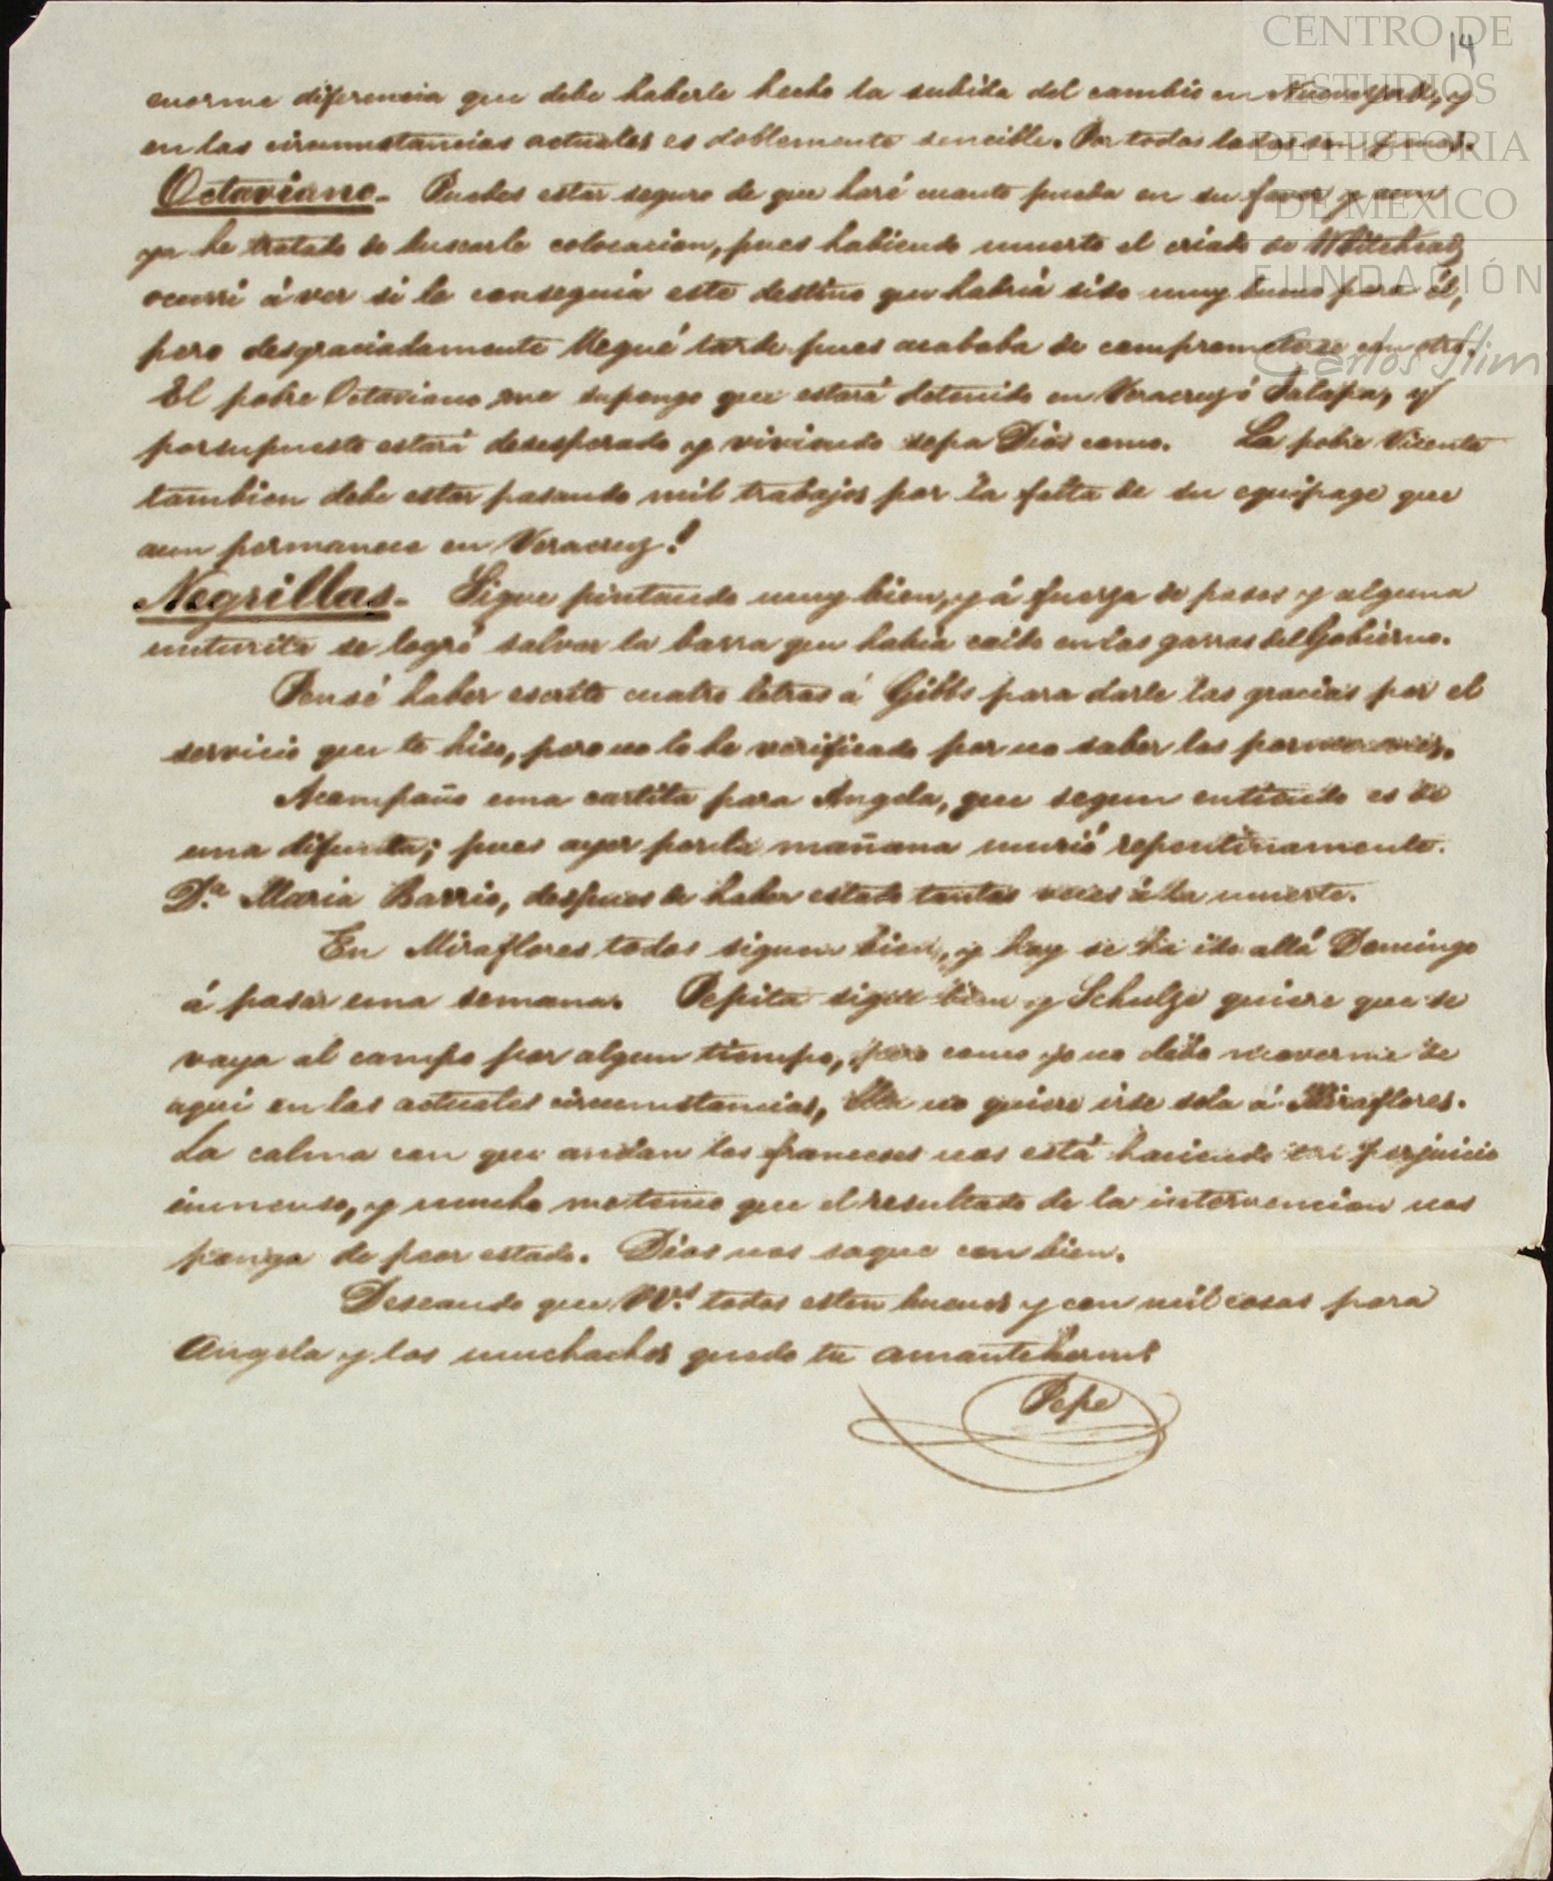 14
CENTRO DE
ESTUDIOS
DE HISTORIA
DE MEXICO
FUNDACIÓN
Carlos Slim
enorme diferencia que debe haberle hecho la subida del cambio en Nueva York, y
en las circunstancias actuales es doblemente sencible. Por todos lados son
Octaviano. Puedes estar seguro de que haré cuanto pueda en su favor y aun
ya he tratado de buscarle colocacion, pues habiendo muerto el criado de Whitehead
ocurrí á ver si le conseguia este destino que habria sido muy bueno para él,
pero desgraciadamente llegué tarde pues acababa de comprometerse con otro.
El pobre Octaviano me supongo que estará detenido en Veracruz ó Jalapa, y
porsupuesto estará desesperado y viviendo sepa Dios como. La pobre Vicenta
tambien debe estar pasando mil trabajos por la falta de su equipage que
aun permanece en Veracruz!
Negrillas. Sigue pintando muy bien, y á fuerza de pasos y alguna
unturita se logró salvar la barra que habia caido en las garras del Gobierno.
Pensé haber escrito cuatro letras á Gibbs para darle las gracias por el
servicio que te hiso, pero no lo he verificado por no saber los pormenores.
Acompaño una cartita para Angela, que segun entiendo es de
una difunta; pues ayer por la mañana murió repentinamente
D.ª Maria Barrio, despues de haber estado tantas veces á la muerte.
En Miraflores todos siguen bien, y hoy se ha ido allá Domingo
á pasar una semana. Pepita sigue bien y Schulze quiere que se
vaya al campo por algun tiempo, pero como yo no debo moverme de
aqui en las actuales circumstancias, Ella no quiere irse sola á Miraflores.
La calma con que andan los franceses nos está haciendo un perjuicio
inmenso, y mucho me temo que el resultado de la intervencion nos
ponga de peor estado. Dios nos saque con bien.
Deseando que VV.s todos esten buenos y con mil cosas para
Angela y los muchachos quedo tu amante herm.º
Pepe